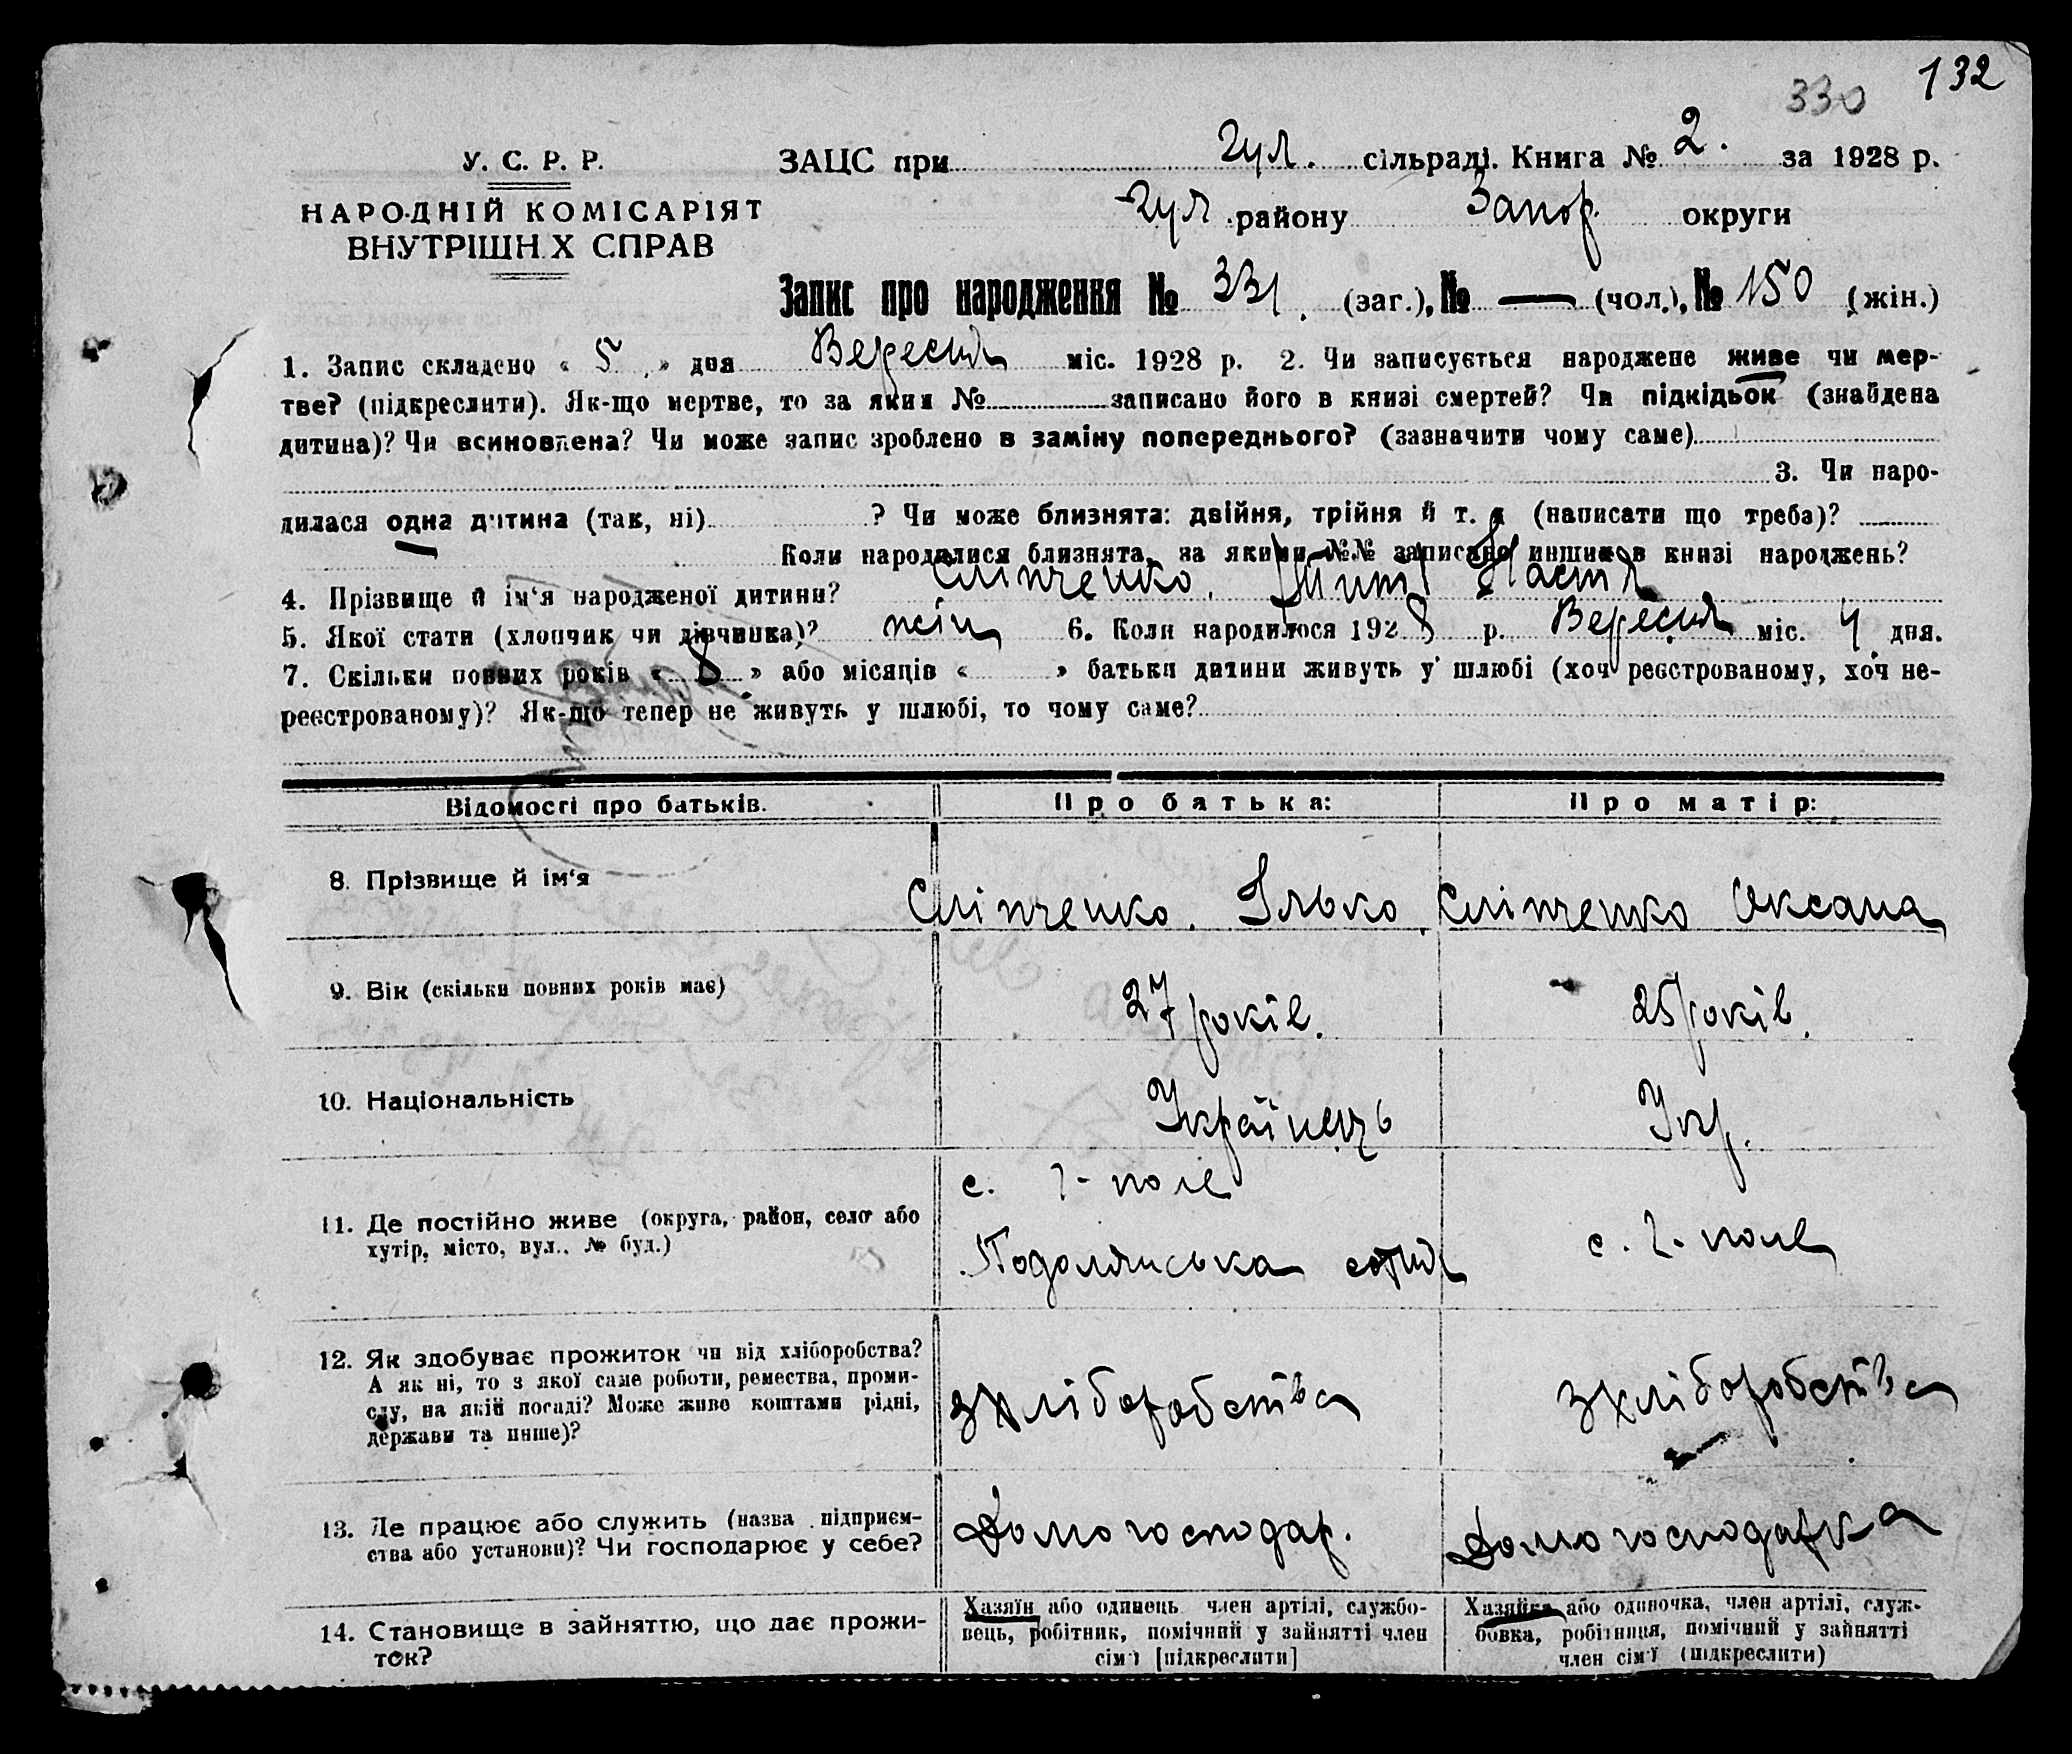 132
330
У. С. Р. Р.
ЗАЦС при Гул. сільраді. Книга № 2. за 1928 р.
НАРОДНІЙ КОМІСАРІЯТ
ВНУТРІШН Х СПРАВ
Гул району Запор. округи
Запис про народження № 331. (заг.), № — (чол.), № 150 (жін.)
1. Запис складено « 5 » дня Вересня міс. 1928 р. 2. Чи записується народжене живе чи мер-
тве? (підкреслити). Як-що мертве, то за яким № записано його в книзі смертей? Чи підкідьок (знайдена
дитина)? Чи всиновлена? Чи може запис зроблено в заміну попереднього? (зазначити чому саме)
3. Чи наро-
дилася одна дитина (так, ні) ? Чи може близнята: двійня, трійня й т. д (написати що треба)?
Коли народилися близнята, за якими №№ записано инших в книзі народжень?
4. Прізвище й ім‘я народженої дитини? Сліпченко. Настя
5. Якої стати (хлопчик чи дівчинка)? жін 6. Коли народилося 1928 р. Вересня міс. 4 дня.
7. Скільки повних років « 8 » або місяців « » батьки дитини живуть у шлюбі (хоч реєстрованому, хоч не-
реєстрованому)? Як-що тепер не живуть у шлюбі, то чому саме?
Відомості про батьків. Про батька: Про матір:
8. Прізвище й ім‘я Сліпченко. Ілько. Сліпченко Оксана
9. Вік (скільки повних років має) 27 років. 25 років.
10. Національність Українець Укр.
с. Г-поле
11. Де постійно живе (округа, район, село або
хутір, місто, вул., № буд.) Подолянська сотня с. Г-поле
12. Як здобуває прожиток чи від хліборобства?
А як ні, то з якої саме роботи, ремества, проми-
слу, на якій посаді? Може живе коштами рідні,
держави та инше)? з хліборобства з хліборобства
13. Де працює або служить (назва підприєм-
ства або установи)? Чи господарює у себе? Домогосподар. Домогосподарка
14. Становище в зайняттю, що дає прожи-
ток?
Хазяїн або одинець член артілі, службо-
вець, робітник, помічний у зайнятті член
сім‘ї [підкреслити]
Хазяйка або одиночка, член артілі, служ-
бовка, робітниця, помічний у зайнятті
член сім‘ї (підкреслити)